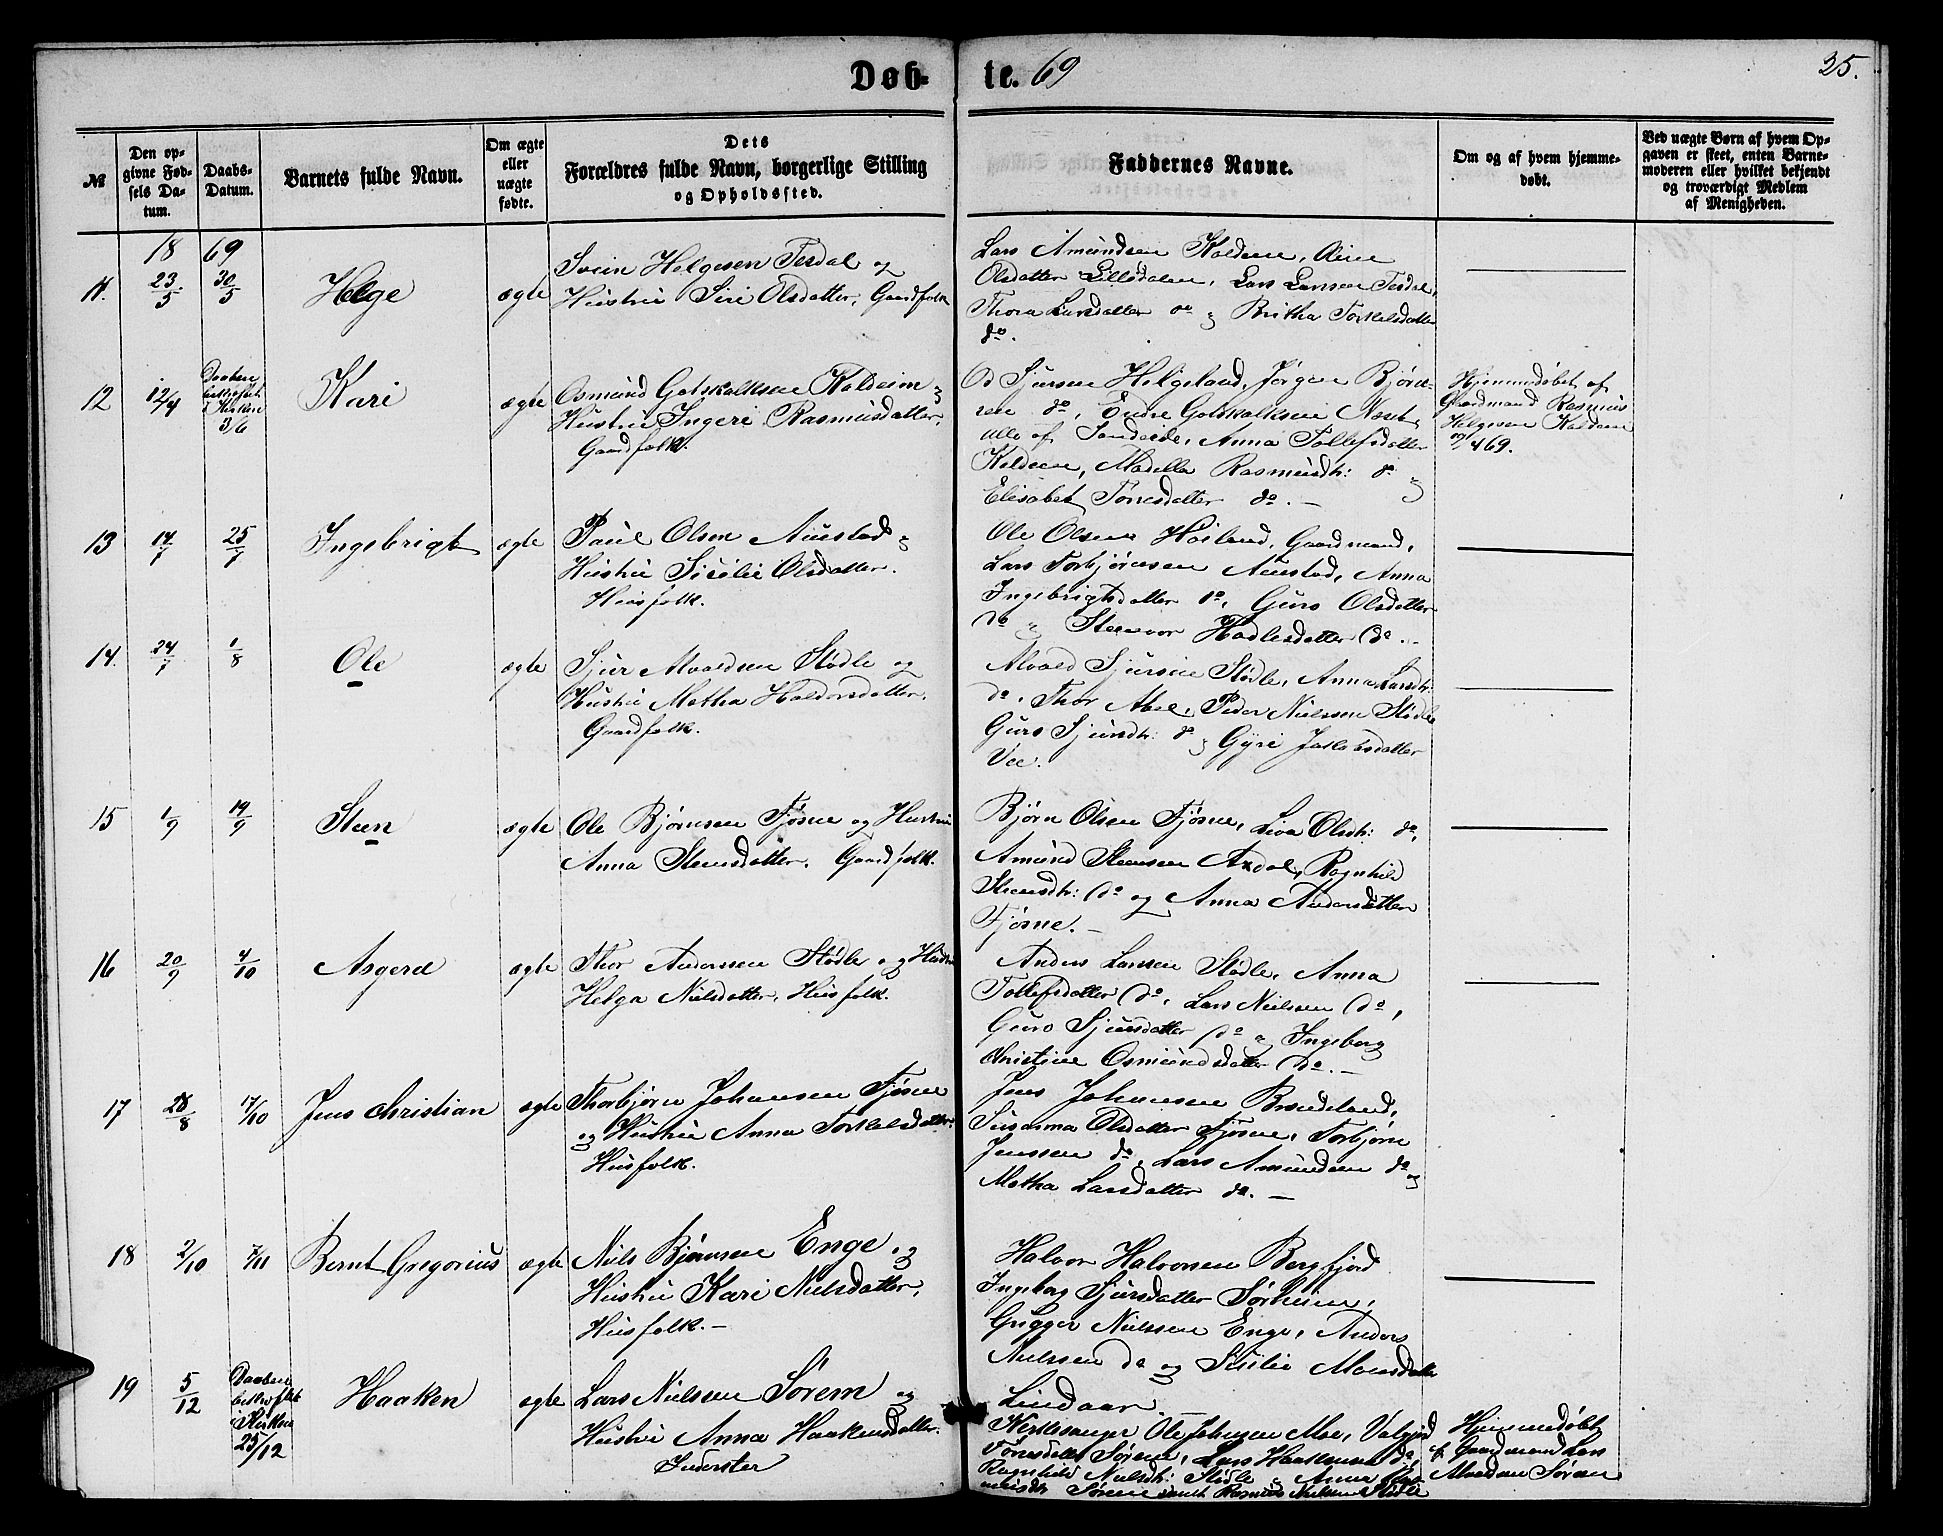 Døb-
te. 69
25.
№
Den opgivne Fødsels Datum.
Daabs-Datum.
Barnets fulde Navn.
Om ægte eller uægte fødte.
Dets
Forældres fulde Navn, borgerlige Stilling
og Opholdssted.
Faddernes Navne.
Om og af hvem hjemmedøbt.
Ved uægte Børn af hvem Opgaven er skeet, enten Barnemoderen eller hvilket bekjendt og troværdigt Medlem af Menigheden.
18 69
11. 23/5 30/5 Helge ægte
Svein Helgesen Tesdal og
Hustru Siri Olsdatter, Gaardfolk
Lars Amundsen Kaldeim,
Olsdatter Lillesdalen, Lars Larsen Tesdal,
Thora Larsdatter do og Britha Torkelsdatter
do.
12 12/4 Daaben bekræftet i Kirken 3/6 Kari ægte
Osmund Gotskalksen Kaldeim og
Hustru Ingeri Rasmusdatter,
Gaardfolk.
Od Sjursen Helgeland, Jørgen Bjørn-
sen do, Endre Gotskalksen Næset,
alle af Sandeide, Anna Tollefsdatter
Kaldeim, Madella Rasmusdtr: do og
Elisabet Tørresdatter do. –
Hjemmedøbt af
Gaardmand Rasmus
Helgesen Kaldeim
/4 69.
13 17/7 25/7 Ingebrigt ægte
Paul Olsen Austad og
Hustru Sisilie Olsdatter.
Husfolk.
Ole Olsen Høiland, Gaardmand,
Lars Torbjørnsen Austad, Anna
Ingebrigtsdatter do, Guro Olsdatter
do og Steenvor Hadlesdatter do. –
14. 24/7 1/8 Ole ægte
Sjur Alvaldsen Stødle og
Hustru Metha Haldorsdatter.
Gaardfolk.
Alvald Sjursen Stødle, Anna Larsdtr:
do, Thor Abel, Peder Nielsen Stødle
Guro Sjursdtr: do og Gyri Jakobsdatter
Vee.
15 1/9 19/9 Steen ægte
Ole Bjørnsen Fjøsne og Hustru
Anna Stensdatter. Gaardfolk.
Bjørn Olsen Fjøsne, Liva Olsdtr: do,
Amund Stensen Axdal, Ragnhild
Stensdtr: do og Anna Andersdatter
Fjøsne. –
16 20/9 4/10 Asgerd ægte
Thor Andersen Stødle og Hustru
Helga Nielsdatter, Husfolk.
Anders Larsen Stødle, Anna
Tollefsdatter do, Lars Nielsen do,
Guro Sjursdatter do og Ingeborg
Christine Osmundsdatter do. –
17 28/8 17/10 Jens Christian ægte
Thorbjørn Johansen Fjøsne
og Hustru Anna Torkelsdatter:
Husfolk.
Jens Johansen Brændeland,
Susanna Olsdatter Fjøsne, Torbjørn
Jenssen do, Lars Amundsen do og
Metha Larsdatter do. –
18 2/10 7/11 Bernt Gregorius ægte
Niels Bjørnsen Enge og
Hustru Kari Nielsdatter,
Husfolk. –
Halvor Halvorsen Bergfjord
Ingeborg Sjursdatter Sørheim,
Gregger Nielsen Enge, Anders
Nielssen do og Sisilie Monsdatter
Lindaas.
19 5/12 Daaben bekræftet i Kirken 25/12 Haaken ægte
Lars Nielsen Sørem og
Hustru Anna Haakensdatter.
Inderster
Kirkesanger Ole Johnsen Moe, Valgjerd
Tørresdatter Sørem, Lars Haakensen do,
Ragnhild Nielsdtr: Stødle og Anna Ras-
musdtr Sørem samt Rasmus Nielsen Stødle
Hjemmedøbt
af Gaardmand Lars
Alvadsen Sørem